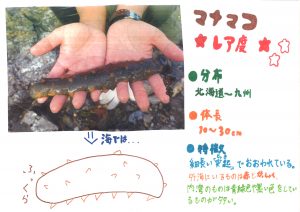 マナマコ
★レア度 ☆☆☆
●分布
北海道〜九州
●体長
10〜30cm
●特徴
細長い突起でおおわれている。
外海にいるものは赤に
内湾のものは青緑色や黒い色をして
いるものが多い。
⇓海では…
ふっくら